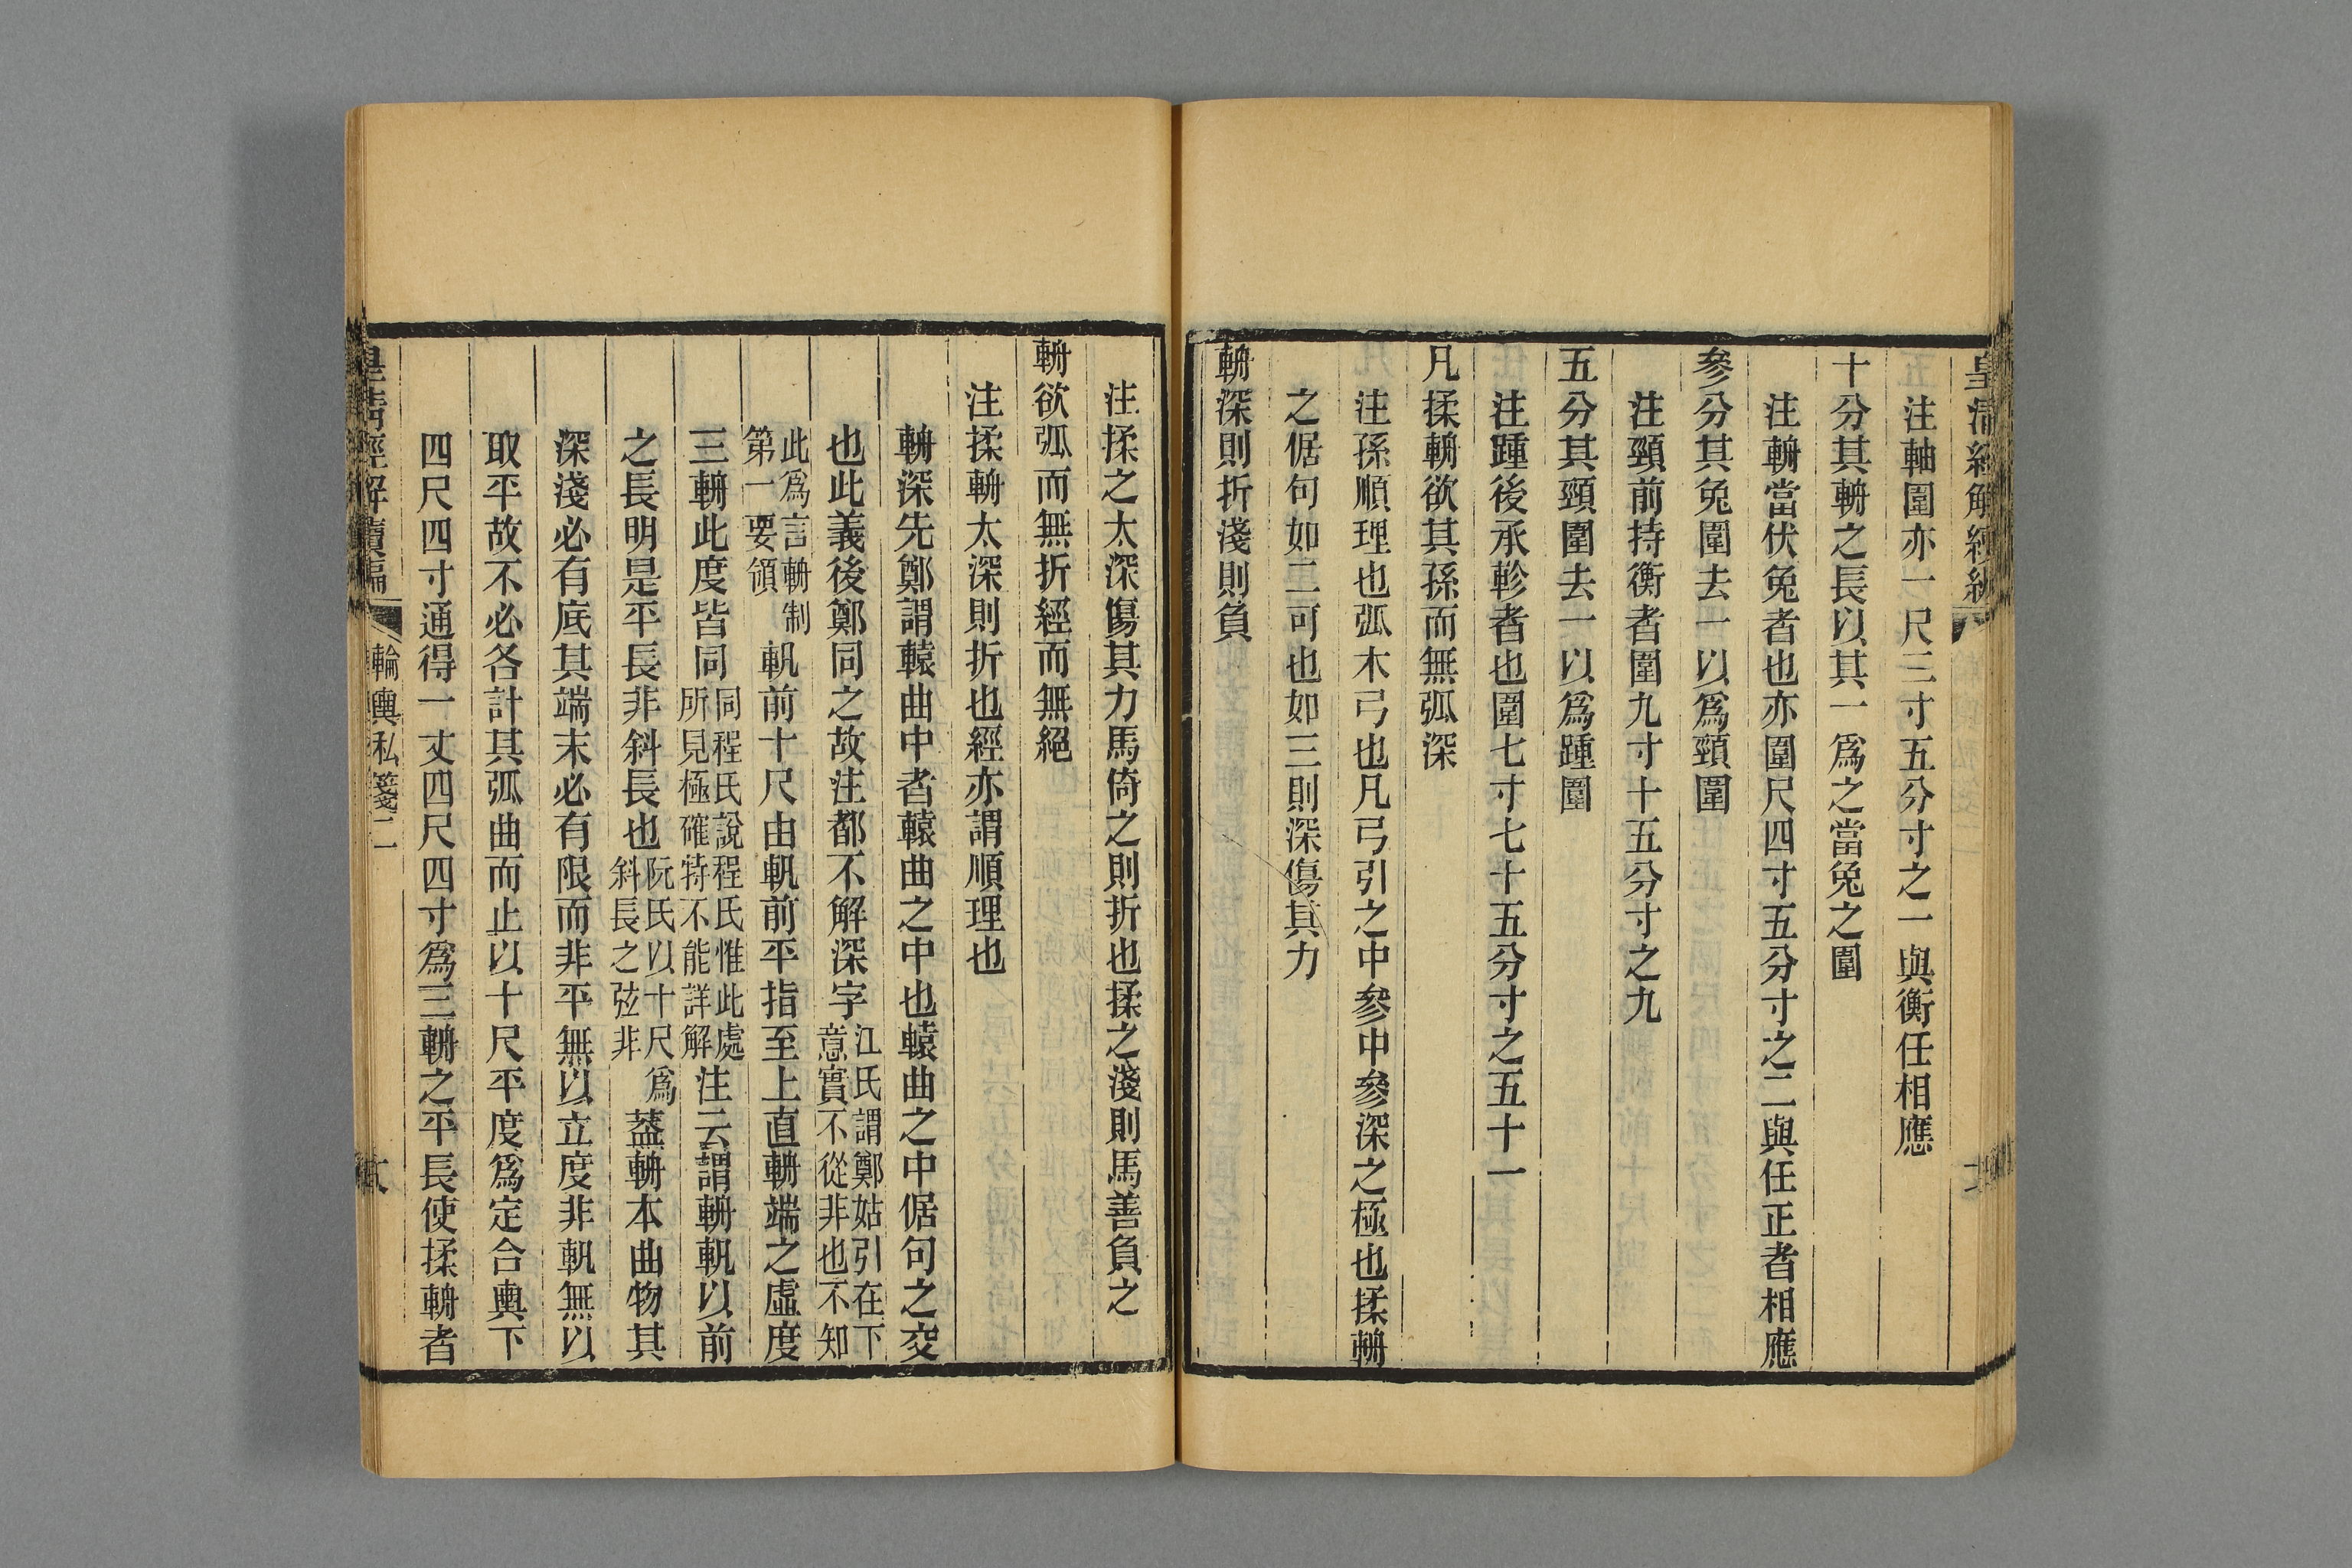 皇清經解續編
注軸圍亦一尺三寸五分寸之一與衡任相應
十分其輈之長以其一爲之當兔之圍
注輈當伏兔者也亦圍尺四寸五分寸之二與任正者相應
參分其兔圍去一以爲頸圍
注頸前持衡者圍九寸十五分寸之九
五分其頸圍去一以爲踵圍
注踵後承軫者也圍七寸七十五分寸之五十一
凡揉輈欲其孫而無弧深
注孫順理也弧木弓也凡弓引之中參中參深之極也揉輈
之倨句如二可也如三則深傷其力
輈深則折淺則負
注揉之太深傷其力馬倚之則折也揉之淺則馬善負之
輈欲弧而無折經而無絕
注揉輈太深則折也經亦謂順理也
輈深先鄭謂轅曲中者轅曲之中也轅曲之中倨句之交
也此義後鄭同之故注都不解深字江氏謂鄭姑引在下意實不從非也不知
此爲言輈制第一要領軓前十尺由軓前平指至上直輈端之虛度
三輈此度皆同同程氏說程氏惟此處所見極確特不能詳解注云謂輈軓以前
之長明是平長非斜長也阮氏以十尺爲斜長之弦非葢輈本曲物其
深淺必有底其端末必有限而非平無以立度非軓無以
取平故不必各計其弧曲而止以十尺平度爲定合輿下
四尺四寸通得一丈四尺四寸爲三輈之平長使揉輈者
皇清經解續編
輪輿私箋二